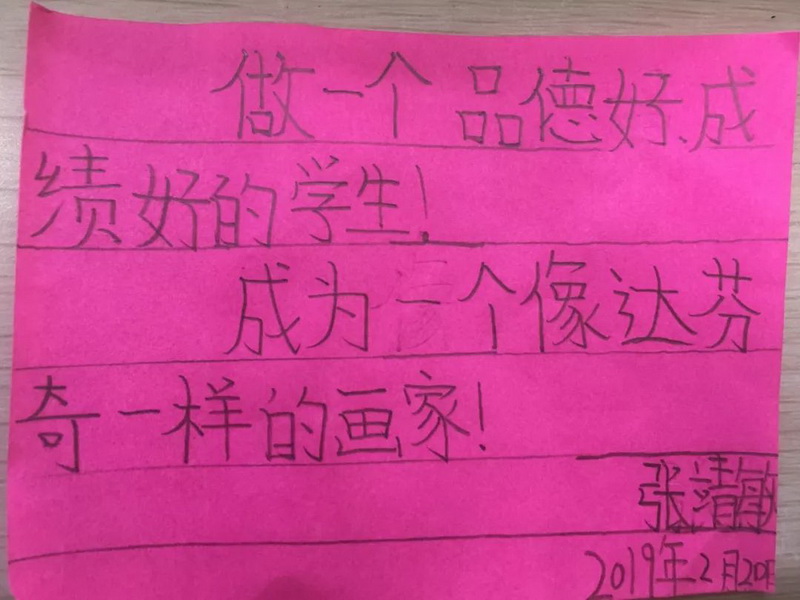 做一个品德好、成
绩好的学生!
成为一个像达芬
奇一样的画家!
张靖敏
2019年2月20日